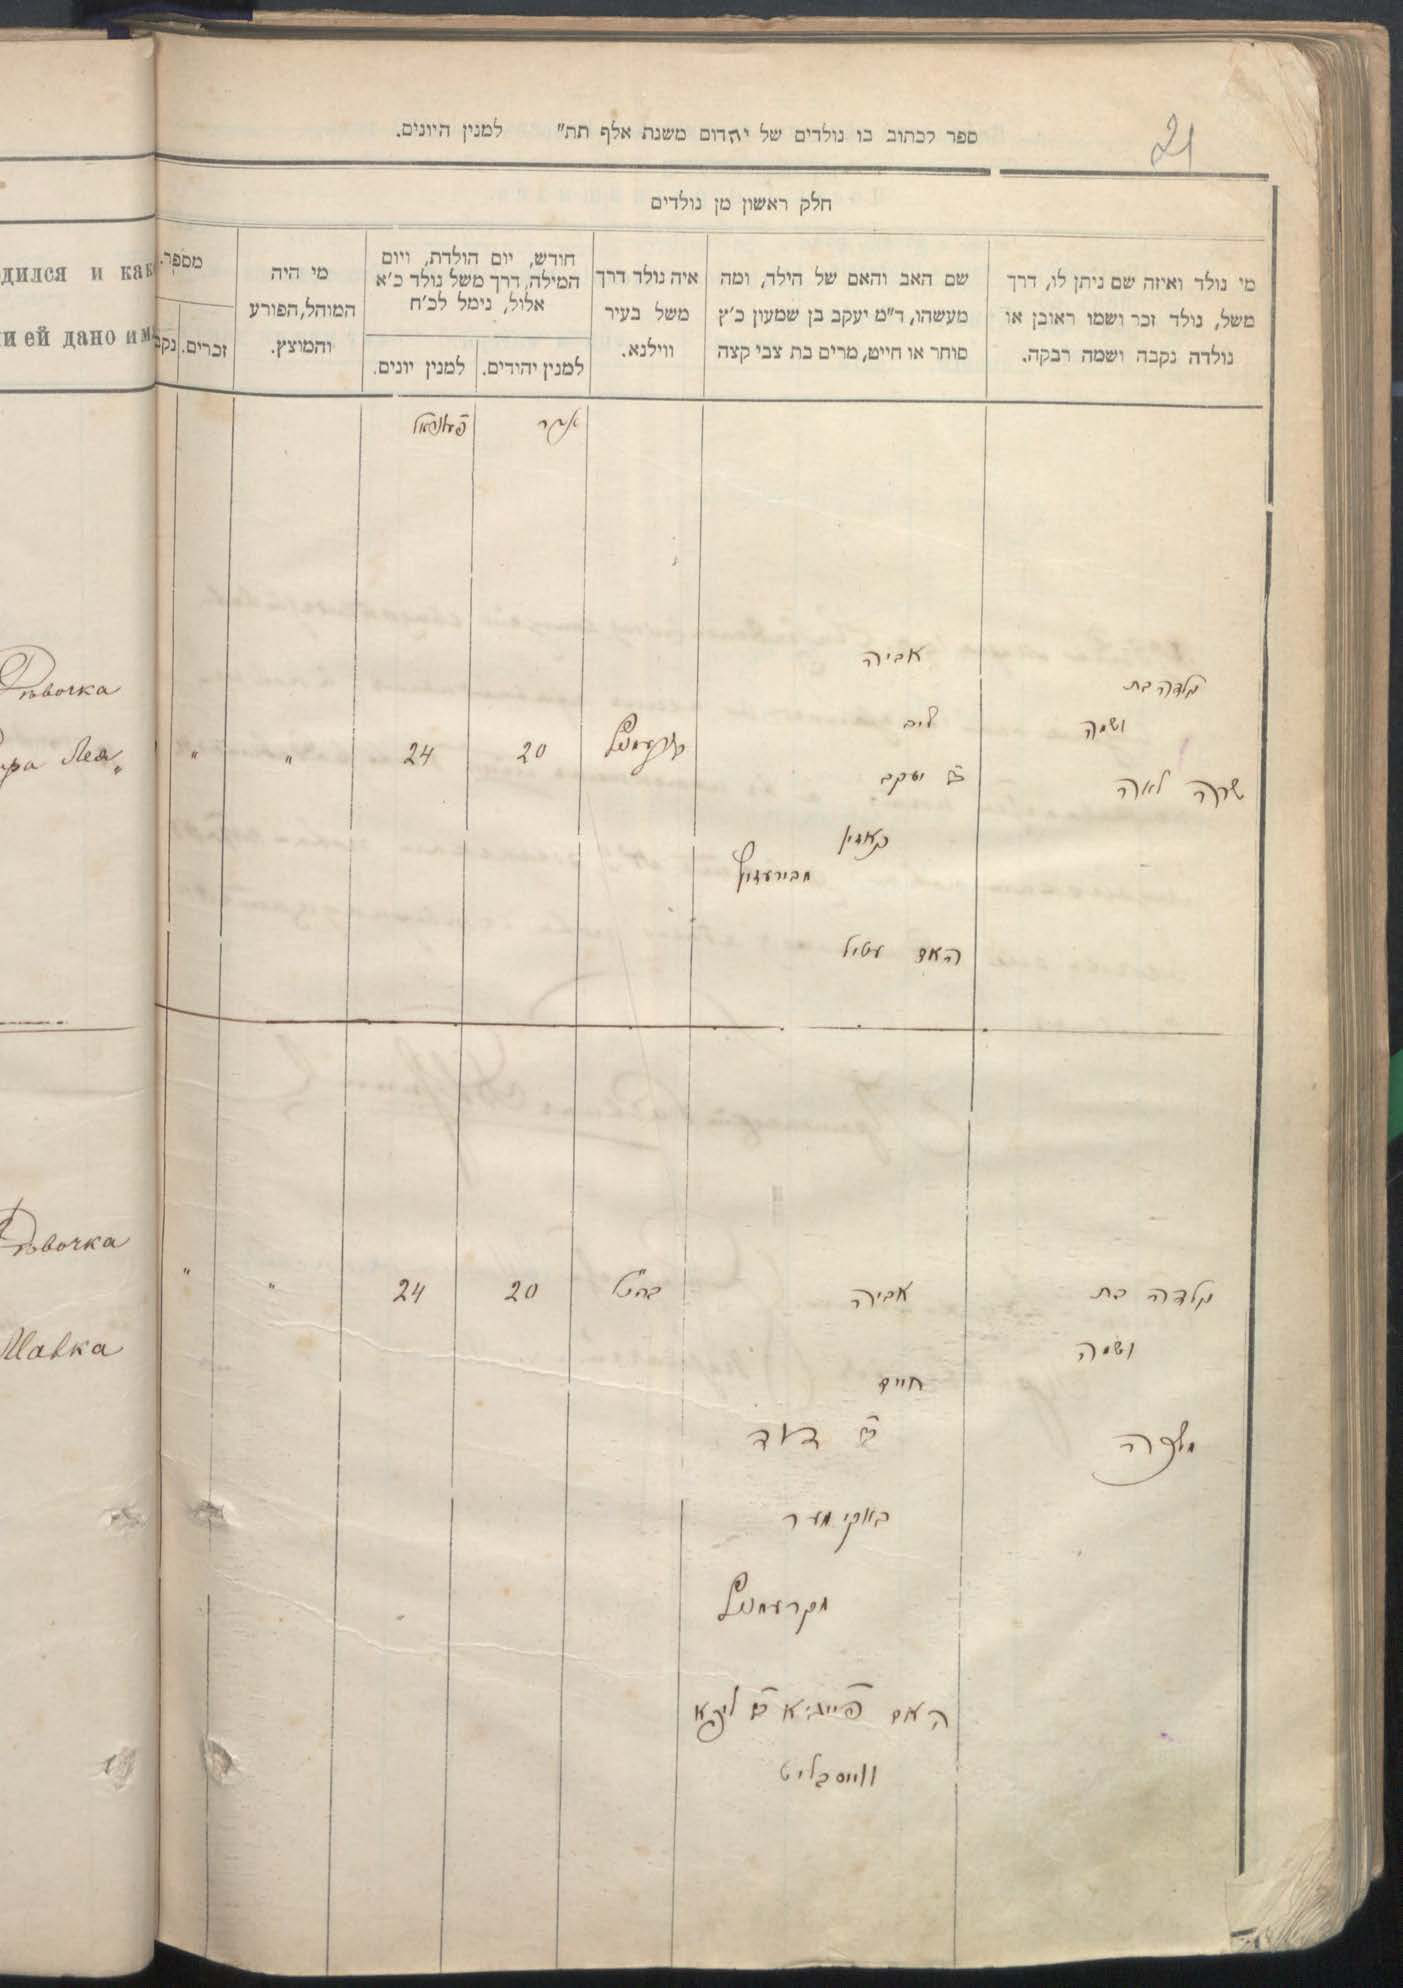 21
ספר לכתוב בו נולדים של יהדום משנת אלף תת״ למנין היונים.
חלק ראשון מן נולדים
מי נולד ואיזה שם ניתן לו, דרך
משל, נולד זכר ושמו ראובן או
נולדה נקבה ושמה רבקה.
שם האב והאם של הילד, ומה
מעשהו, ד"מ יעקב בן שמעון כ'ץ
סוחר או חייט, מרים בת צבי קצה
איה נולד דרך
משל בעיר
ווילנא.
חודש, יום הולדת, ויום
המילה, דרך משל נולד כ'א
אלול, נימל לכ'ח
למנין יהודים.
למנין יונים.
מי היה
המוהל, הפורע
והמוצץ.
מספר.
זכרים.
נקב
дился и как
ни ей дано им
אדר
פעווראל
נולדה בת
ושמה
שרה לאה
אביה
ליב
יעקב
האם
קרעמניץ
20
24
"
"
Девочка
ра Лея"
נולדה בת
ושמה
מלכה
אביה
חיים
דוד
מקרעמניץ
האם פייגא
ווייסבליט
20
24
"
"
Девочка
Малка